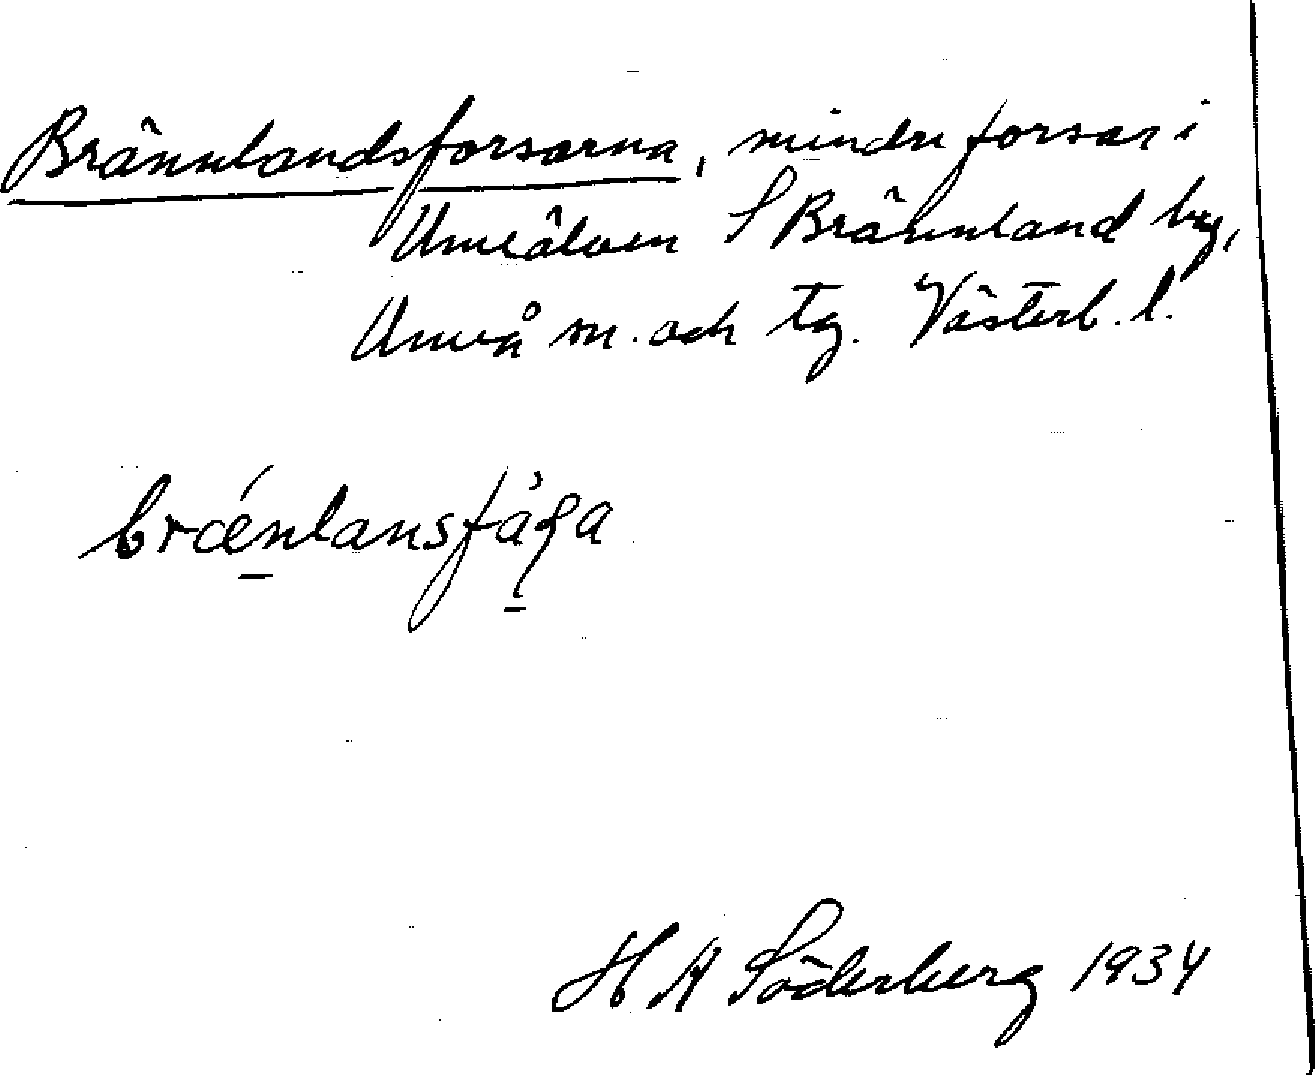 Brännlandsforsarna, mindre forsar i
Umeälven S Brännland by,
Umeå sn. och tg. Västerb. l.
H A Söderberg 1934